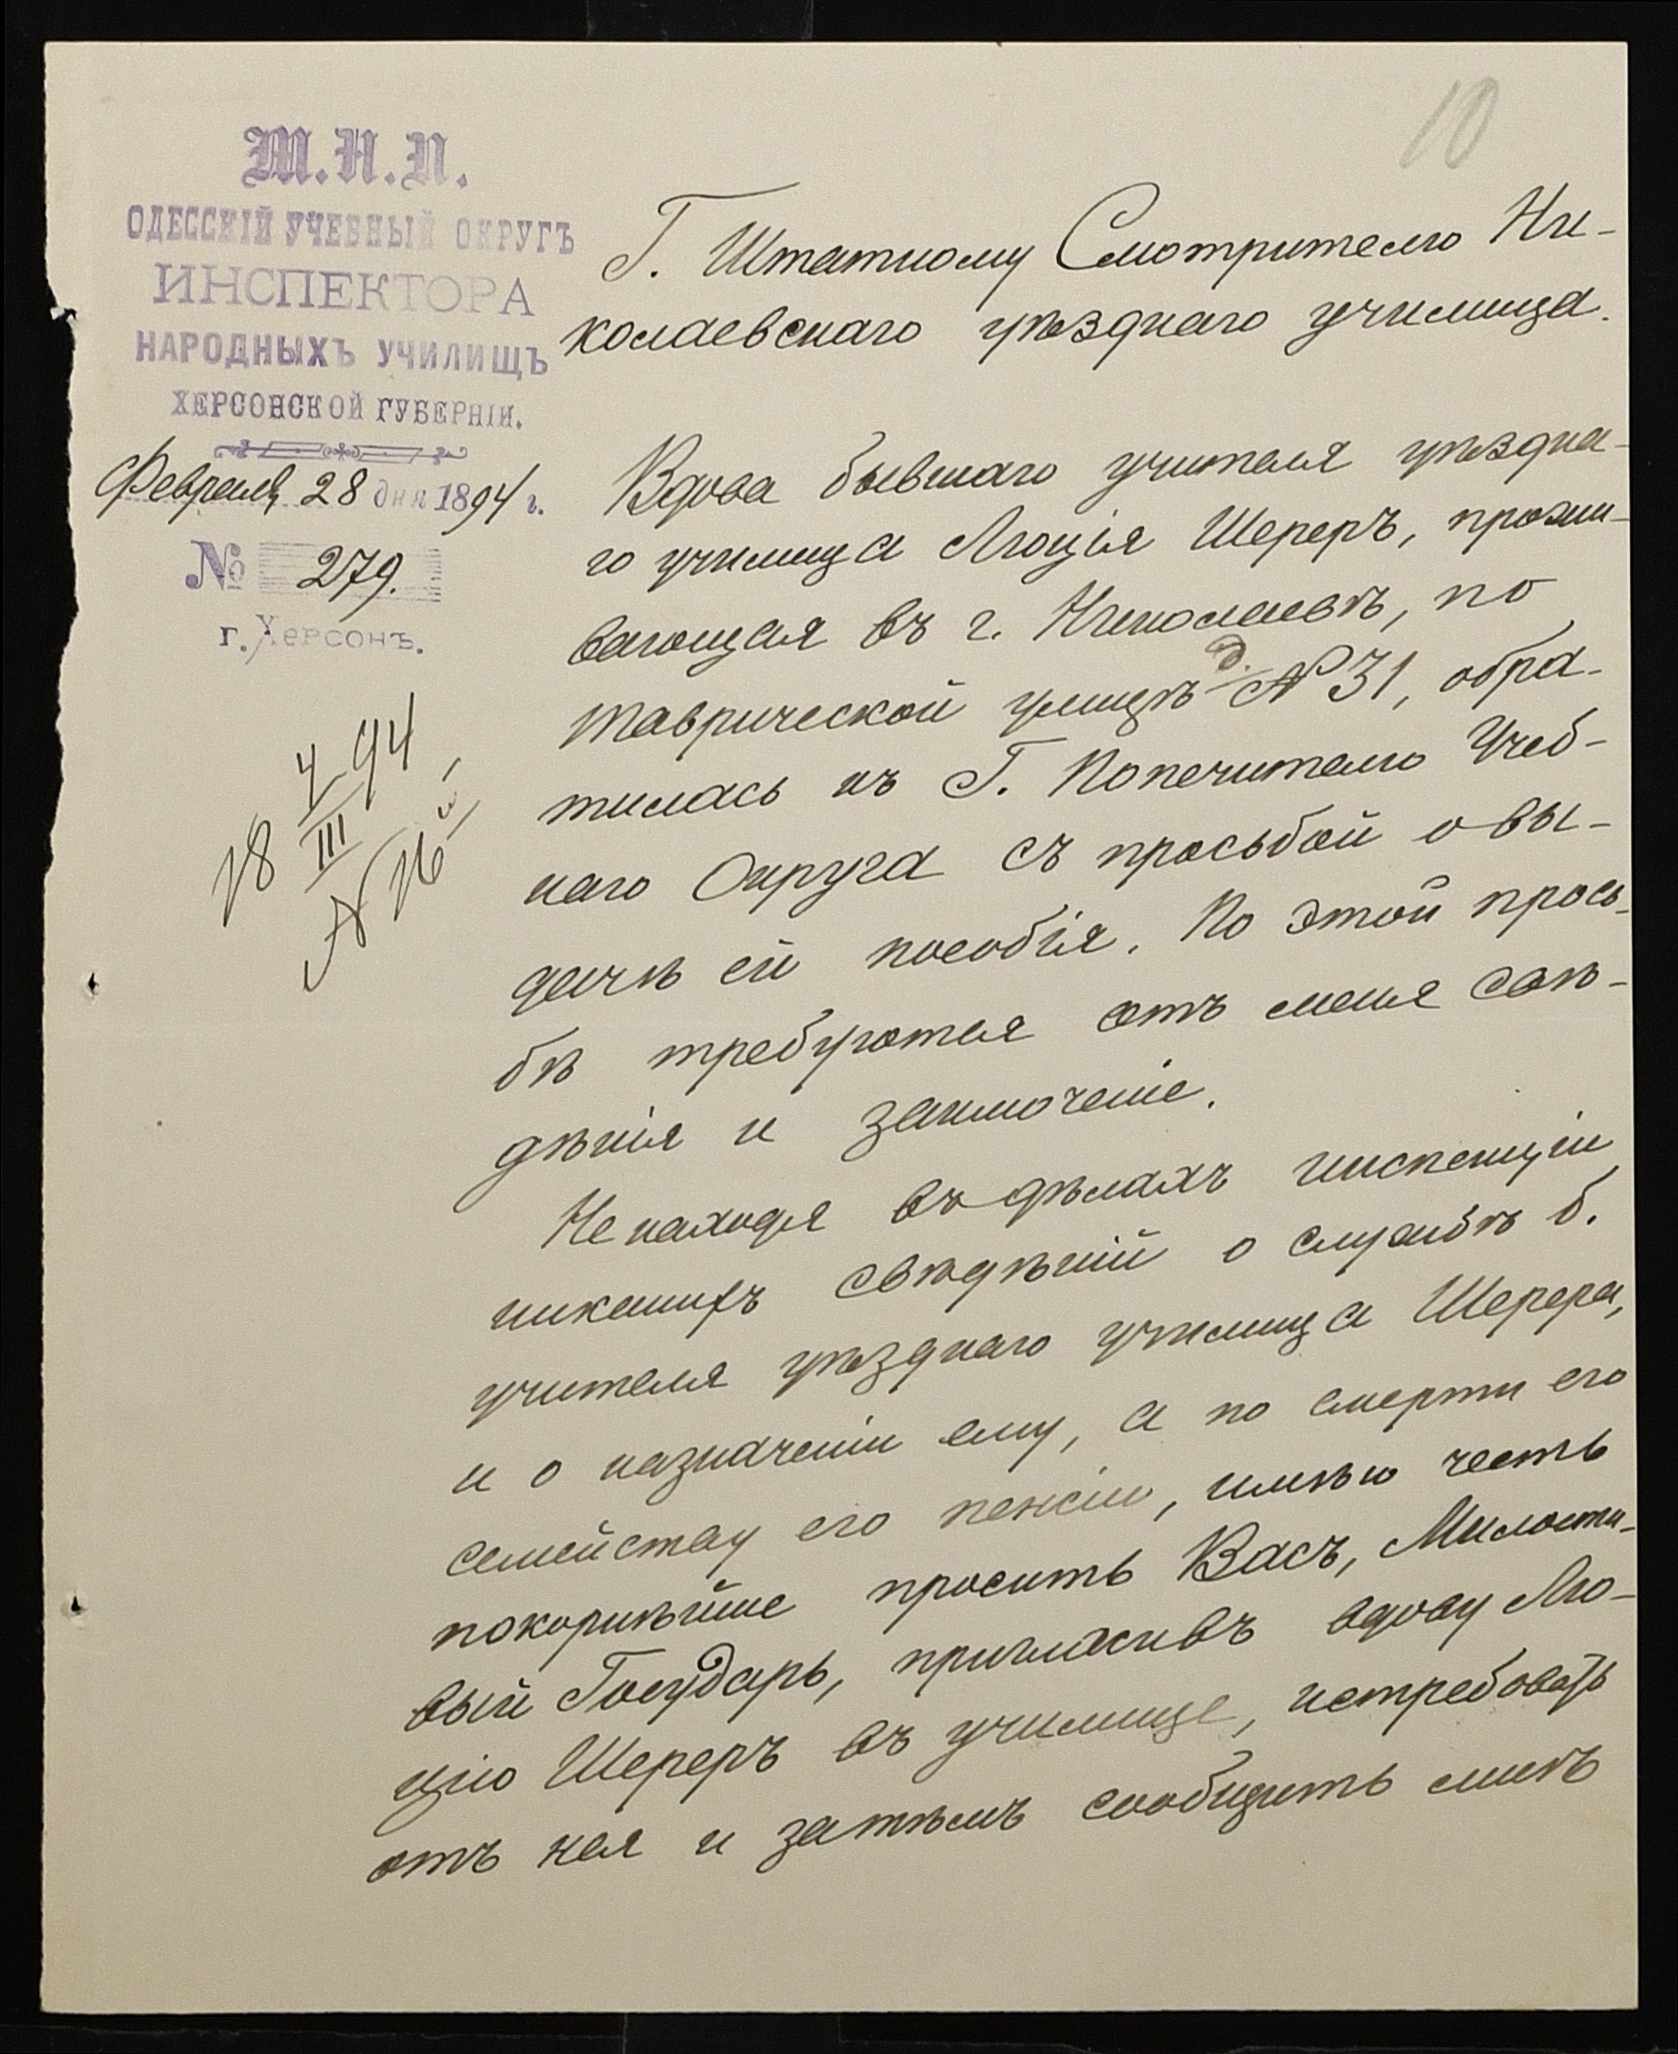 10
М.Н.П.
ОДЕССКІЙ УЧЕБНЫЙ ОКРУГЪ
ИНСПЕКТОРА
НАРОДНЫХЪ УЧИЛИЩЪ
ХЕРСОНСКОЙ ГУБЕРНІИ.
Февраля 28 дня 1894 г.
№ 279.
г. Херсонъ.
18 4/III 94
№ 16
Г. Штатному Смотрителю Ни-
колаевскаго уѣзднаго училища.
Вдова бывшаго учителя уѣздна-
го училища Люція Шереръ, прожи-
вающая въ г. Николаевѣ, по
Таврической улицѣ д. № 31, обра-
тилась къ Г. Попечителю Учеб-
наго Округа съ просьбой о вы-
дачѣ ей пособія. По этой прось-
бѣ требуются отъ меня свѣ-
дѣнія и заключеніе.
Не находя въ дѣлахъ инспекціи
никакихъ свѣдѣній о службѣ б.
учителя уѣзднаго училища Шерера,
и о назначеніи ему, а по смерти его
семейству его пенсіи, имѣю честь
покорнѣйше просить Васъ, Милости-
вый Государь, пригласивъ вдову Лю-
цію Шереръ въ училище, истребовать
отъ нея и затѣмъ сообщить мнѣ